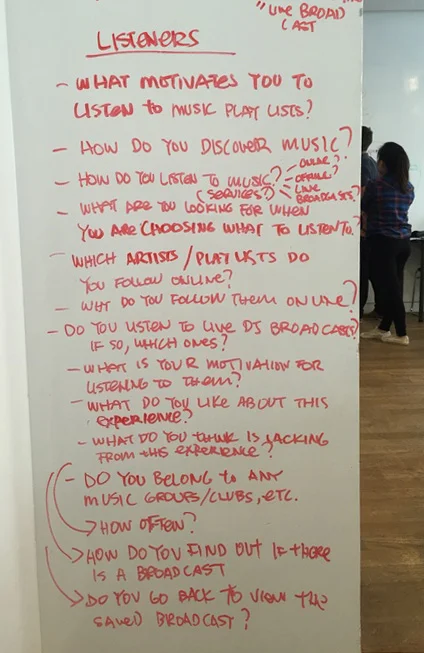 "LIVE BROAD
CAST
LISTENERS
- WHAT MOTIVATES YOU TO
LISTEN to MUSIC PLAY LISTS?
- HOW DO YOU DISCOVER MUSIC?
- HOW DO YOU LISTEN TO MUSIC? - ONLINE?
(SERVICES?) - OFFLINE?
- LIVE
BROADCASTS?
- WHAT ARE YOU LOOKING FOR WHEN
YOU ARE CHOOSING WHAT TO LISTEN TO?
- WHICH ARTISTS/PLAYLISTS DO
YOU FOLLOW ONLINE?
- WHY DO YOU FOLLOW THEM ONLINE?
- DO YOU LISTEN TO LIVE DJ BROADCASTS?
IF SO, WHICH ONES?
- WHAT IS YOUR MOTIVATION FOR
LISTENING TO THEM?
- WHAT DO YOU LIKE ABOUT THIS
EXPERIENCE?
- WHAT DO YOU THINK IS LACKING
FROM THIS EXPERIENCE?
- DO YOU BELONG to ANY
MUSIC GROUPS/CLUBS, ETC.
> HOW OFTEN?
> HOW DO YOU FIND OUT IF THERE
IS A BROADCAST
> DO YOU GO BACK TO VIEW THE
SAVED BROADCAST?